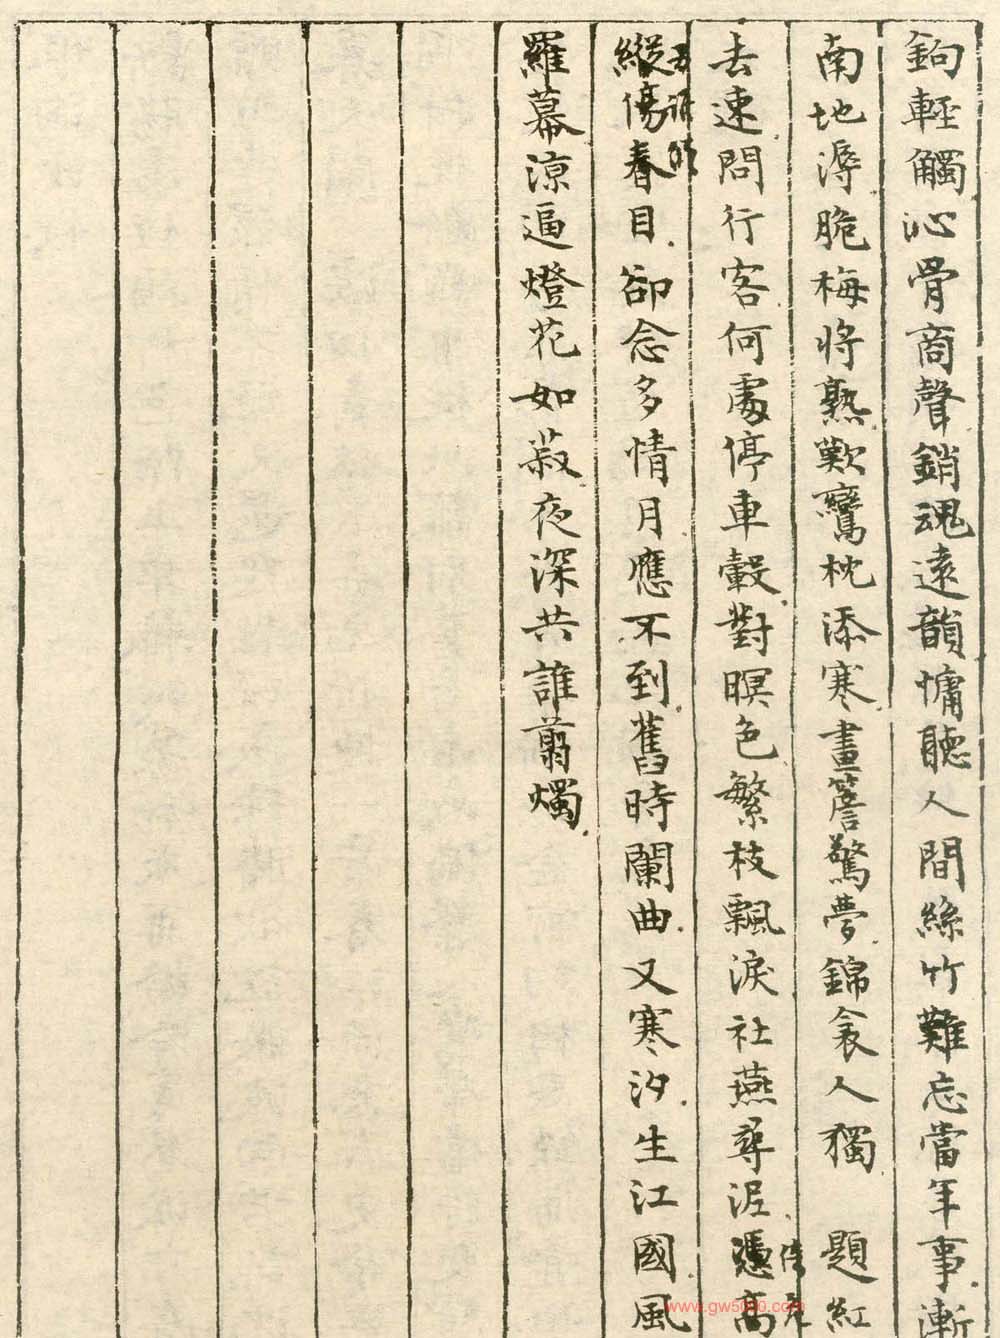 鉤輕觸沁骨商聲銷魂遠韻慵聽人間絲竹難忘當年事漸
南地溽脆梅將熟歎鸞枕添寒畫簷驚夢錦衾人獨　題紅
去速問行客何處停車轂對暝色繁枝飄淚社燕尋泥憑高
縱傷春目卻念多情月應不到舊時闌曲又寒汐生江國風
羅幕涼逼燈花如菽夜深共誰翦燭
www.gw5000.com